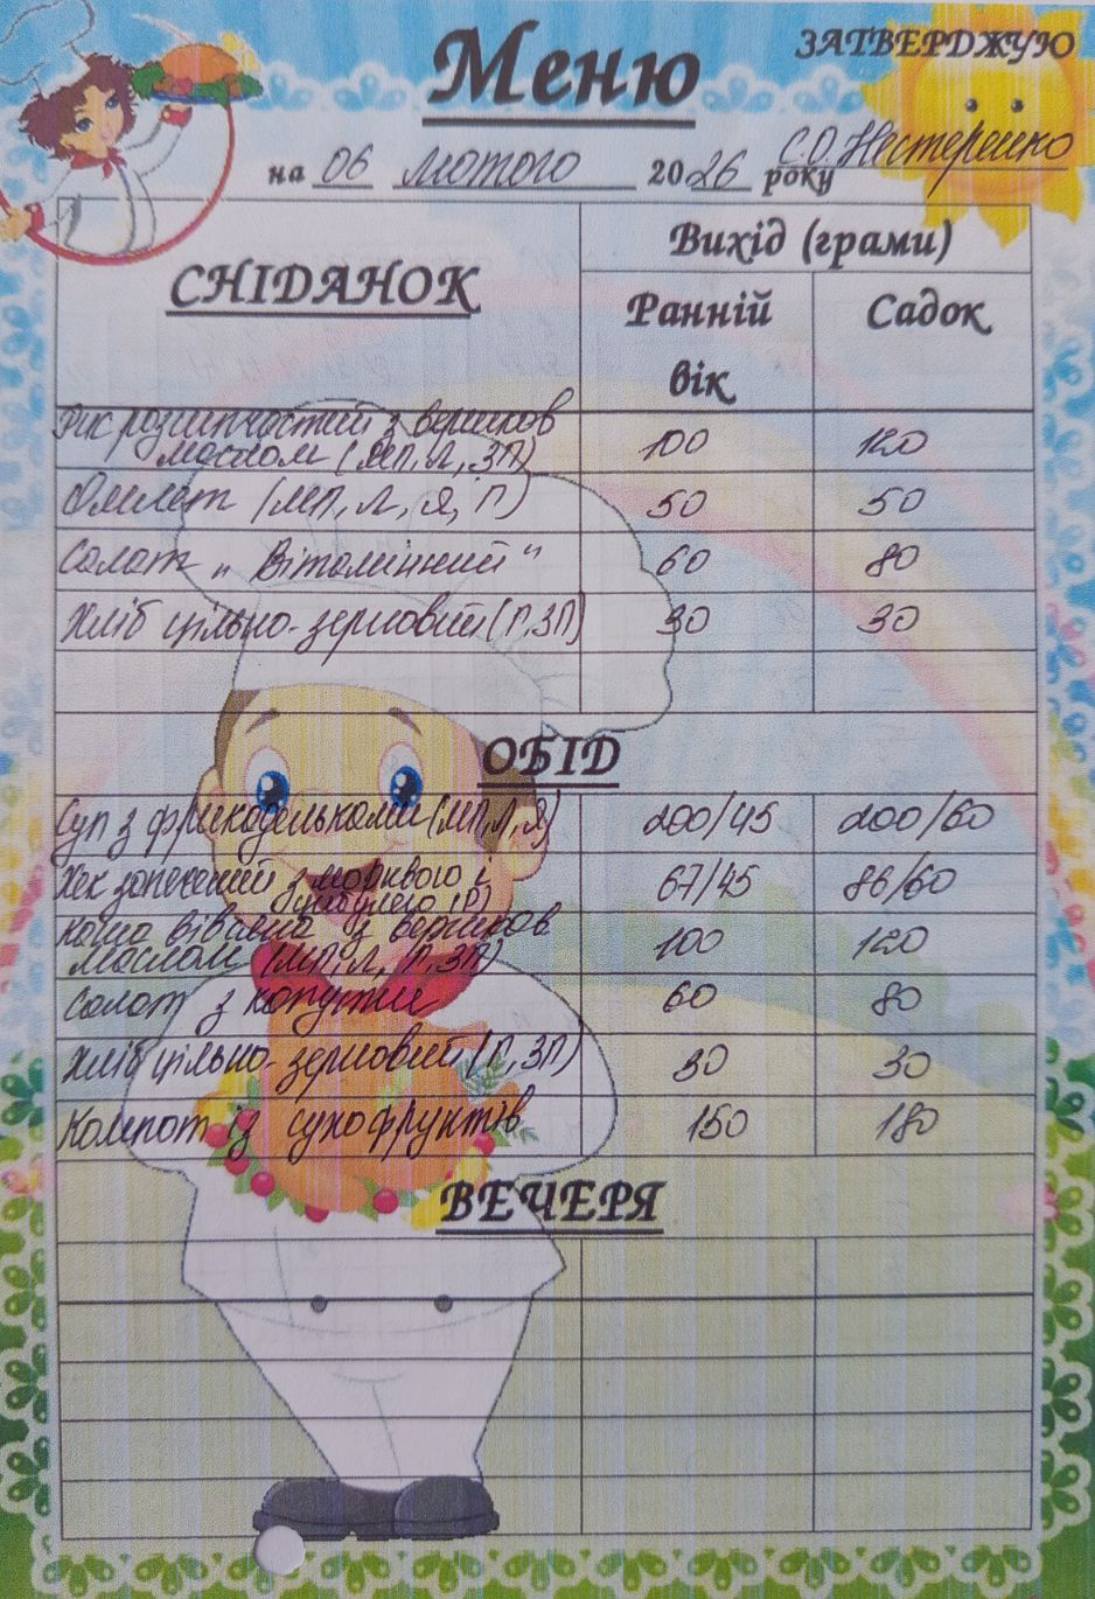 Меню
ЗАТВЕРДЖУЮ
на 06 лютого 2026 року С.О. Нестеренко
СНІДАНОК
Вихід (грами)
Ранній вік
Садок
Рис розсипчастий з вершков
маслом (МП, Л, ЗП) 100 120
Омлет (МП, Л, Я, П) 50 50
Салат „Вітамінний" 60 80
Хліб цільно-зерновий (П, ЗП) 30 30
ОБІД
Суп з фрикадельками (МП, Л, Я) 200/45 200/60
Хек запечений з морквою і
цибулею (Р) 67/45 86/60
Каша вівсяна з вершков
маслом (МП, Л, П, ЗП) 100 120
Салат з капусти 60 80
Хліб цільно-зерновий (П, ЗП) 30 30
Компот із сухофруктів 150 180
ВЕЧЕРЯ